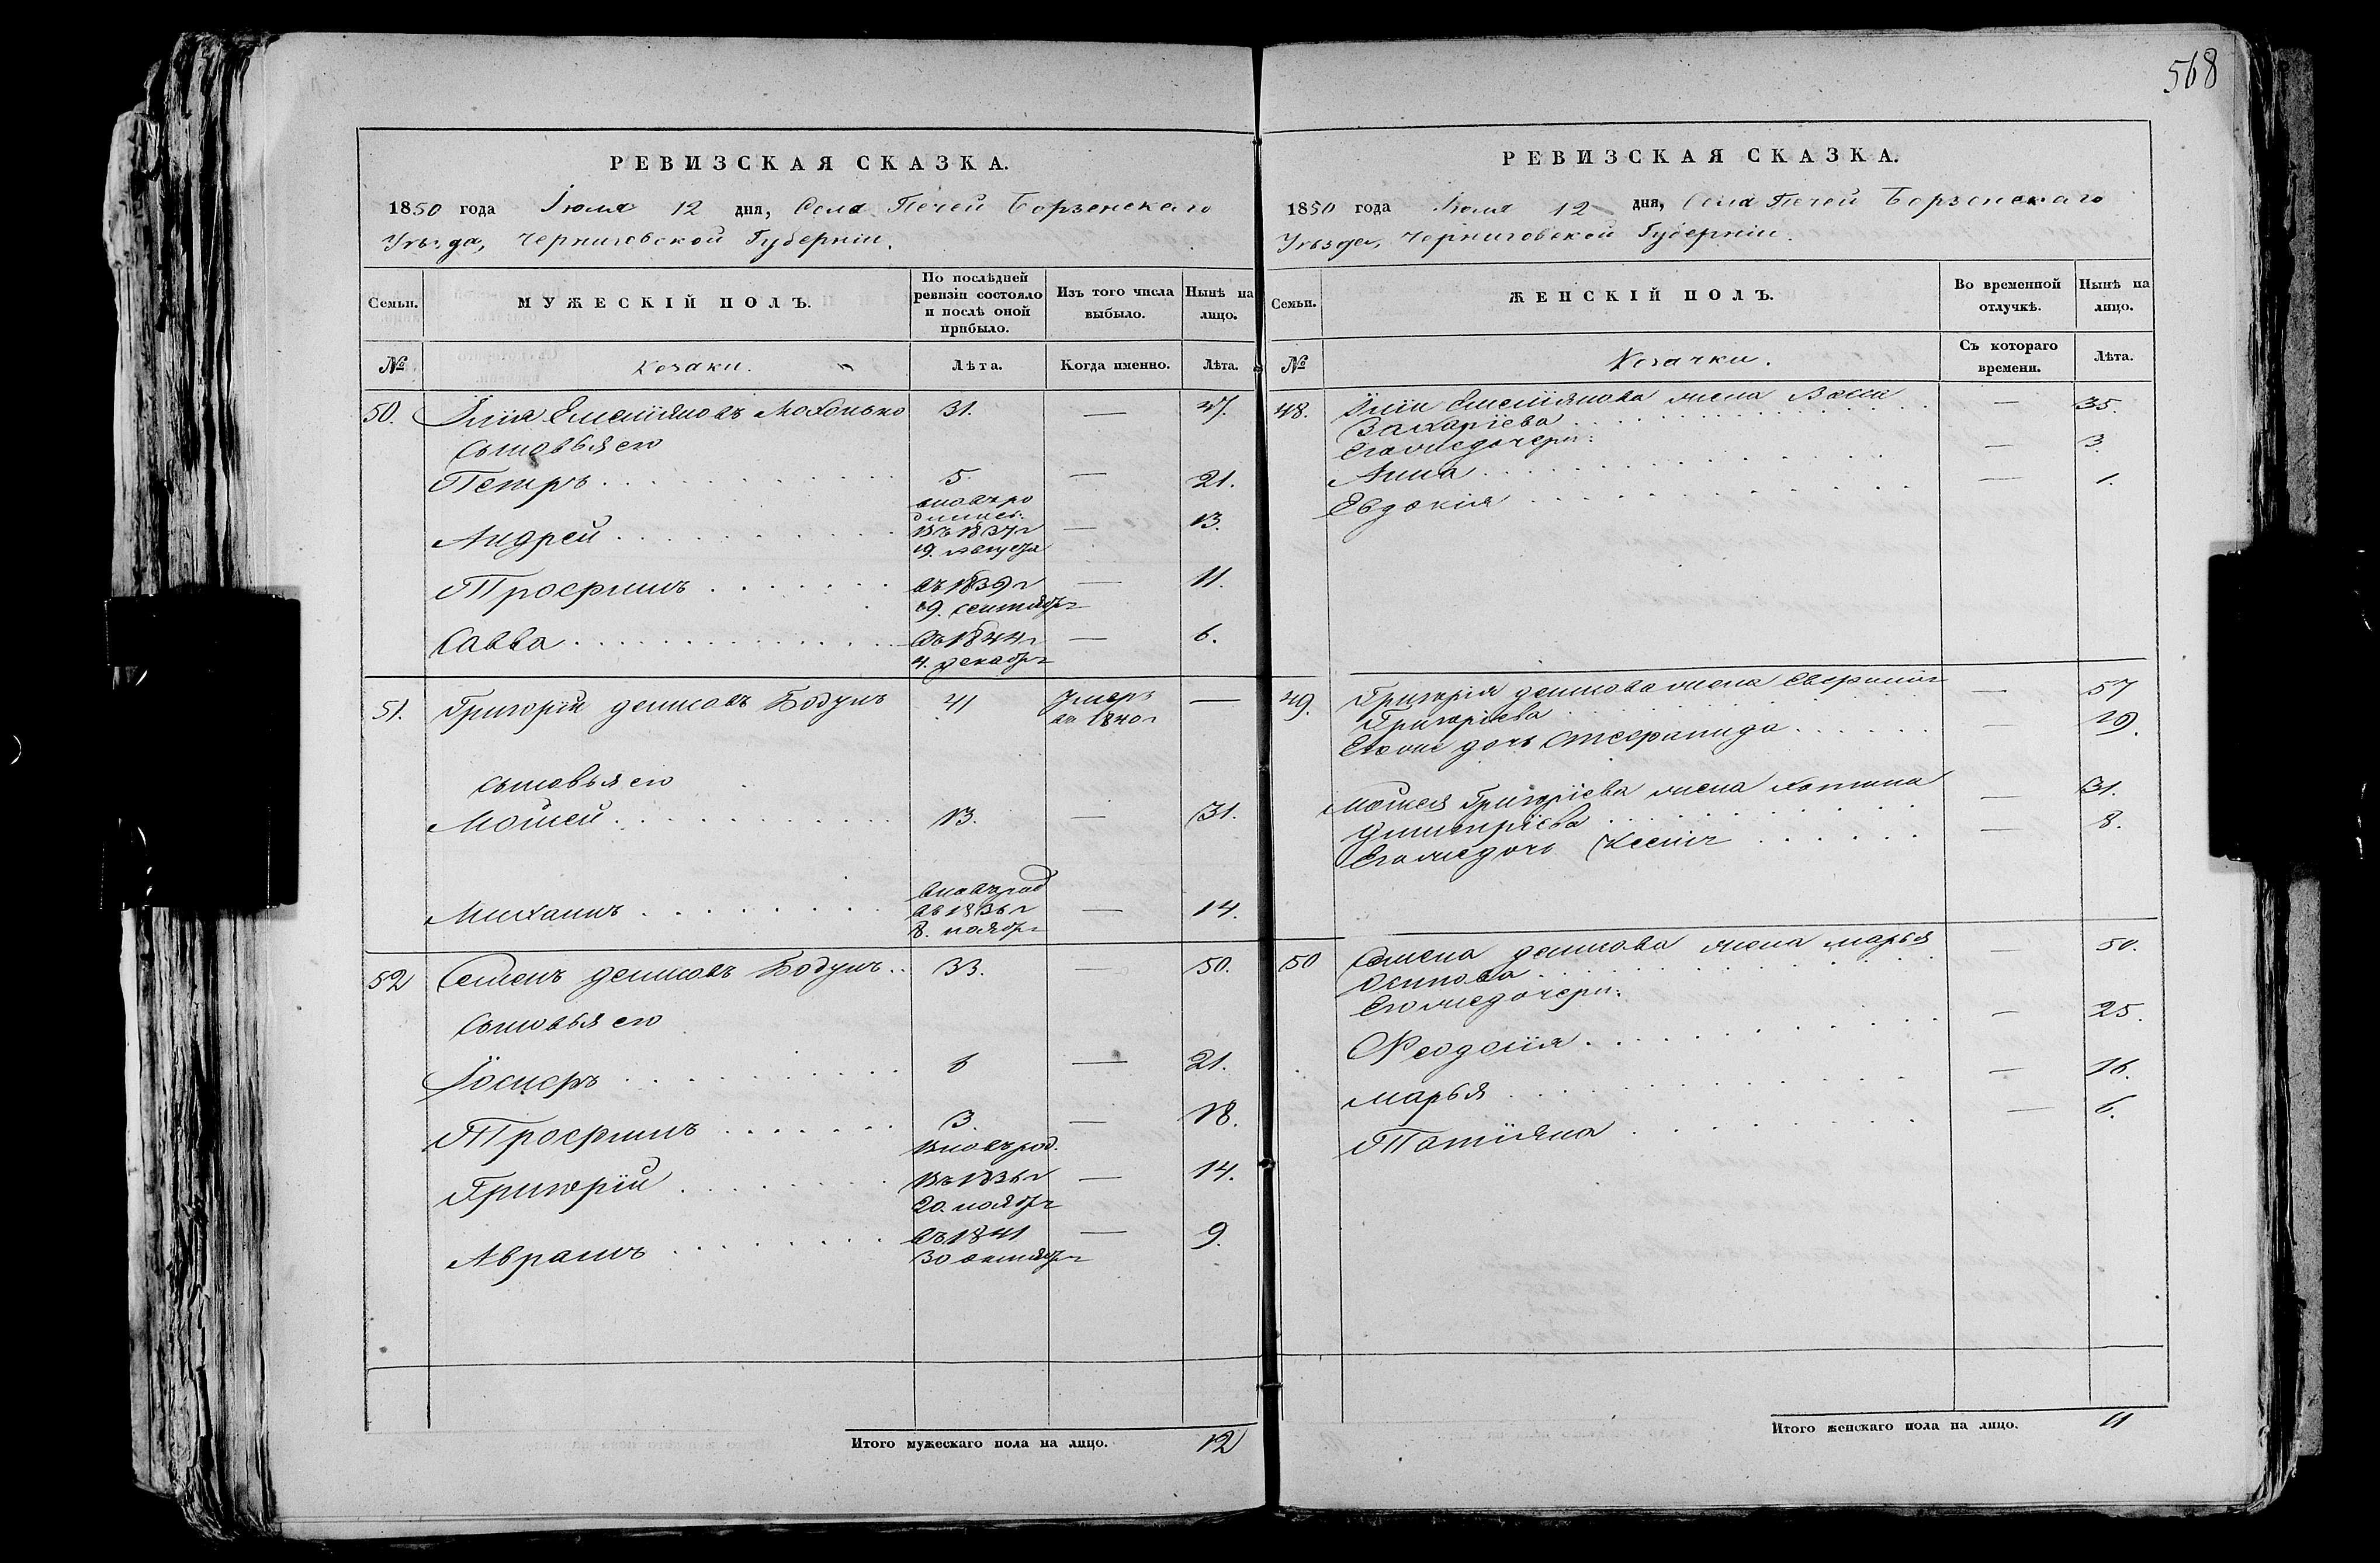 568
РЕВИЗСКАЯ СКАЗКА.
1850 года Іюля 12 дня, Села Печей Борзенскаго
Уѣзда, Черниговской Губерніи.
Семьи.
МУЖЕСКІЙ ПОЛЪ.
По послѣдней
ревизіи состояло
и послѣ оной
прибыло.
Изъ того числа
выбыло.
Нынѣ на
лицо.
№
Козаки.
Лѣта.
Когда именно.
Лѣта.
50. Илія Емеліяновъ 31. — 47.
Сыновья его
Петръ 5. — 21.
вновь ро
дились.
Андрей Въ 1837 г — 13.
19. августа
Трофимъ въ 1839 г — 11.
19. сентября
Савва въ 1844 г — 6.
4. декабря
51. Григорій Денисовъ Бодунъ 41 Умеръ —
въ 1840 г
Сыновья его
Мойсей 13. — 31.
вновь род
Михаилъ въ 1836 г — 14.
8. ноября
52 Семенъ Денисовъ Бодунъ 33. — 50.
Сыновья его
Іосифъ 6 — 21.
Трофимъ 3. — 18.
Вновь род.
Григорій Въ 1836 г — 14.
20. ноября
Аврамъ въ 1841 — 9.
30 октября
Итого мужескаго пола на лицо. 12
РЕВИЗСКАЯ СКАЗКА.
1850 года Іюля 12 дня, Села Печей Борзенскаго
Уѣзда, Черниговской Губерніи.
Семьи.
ЖЕНСКІЙ ПОЛЪ.
Во временной
отлучкѣ.
Нынѣ на
лицо.
№
Козачки.
Съ котораго
времени.
Лѣта.
48. Иліи Емеліянова жена Васса — 35.
Захаріева
Его же дочери:
Анна — 3
Евдокія — 1.
49. Григорія Денисова жена — 57
Григоріева
Его же дочь — 19.
Мойсея Григоріева жена — 31.
Дмитріева
Его же дочь Ксенія — 8.
50 Семена Денисова жена Марья — 50.
Осипова
Его же дочери:
Феодосія — 25.
Марья — 16.
Татіяна — 6.
Итого женскаго пола на лицо. 11